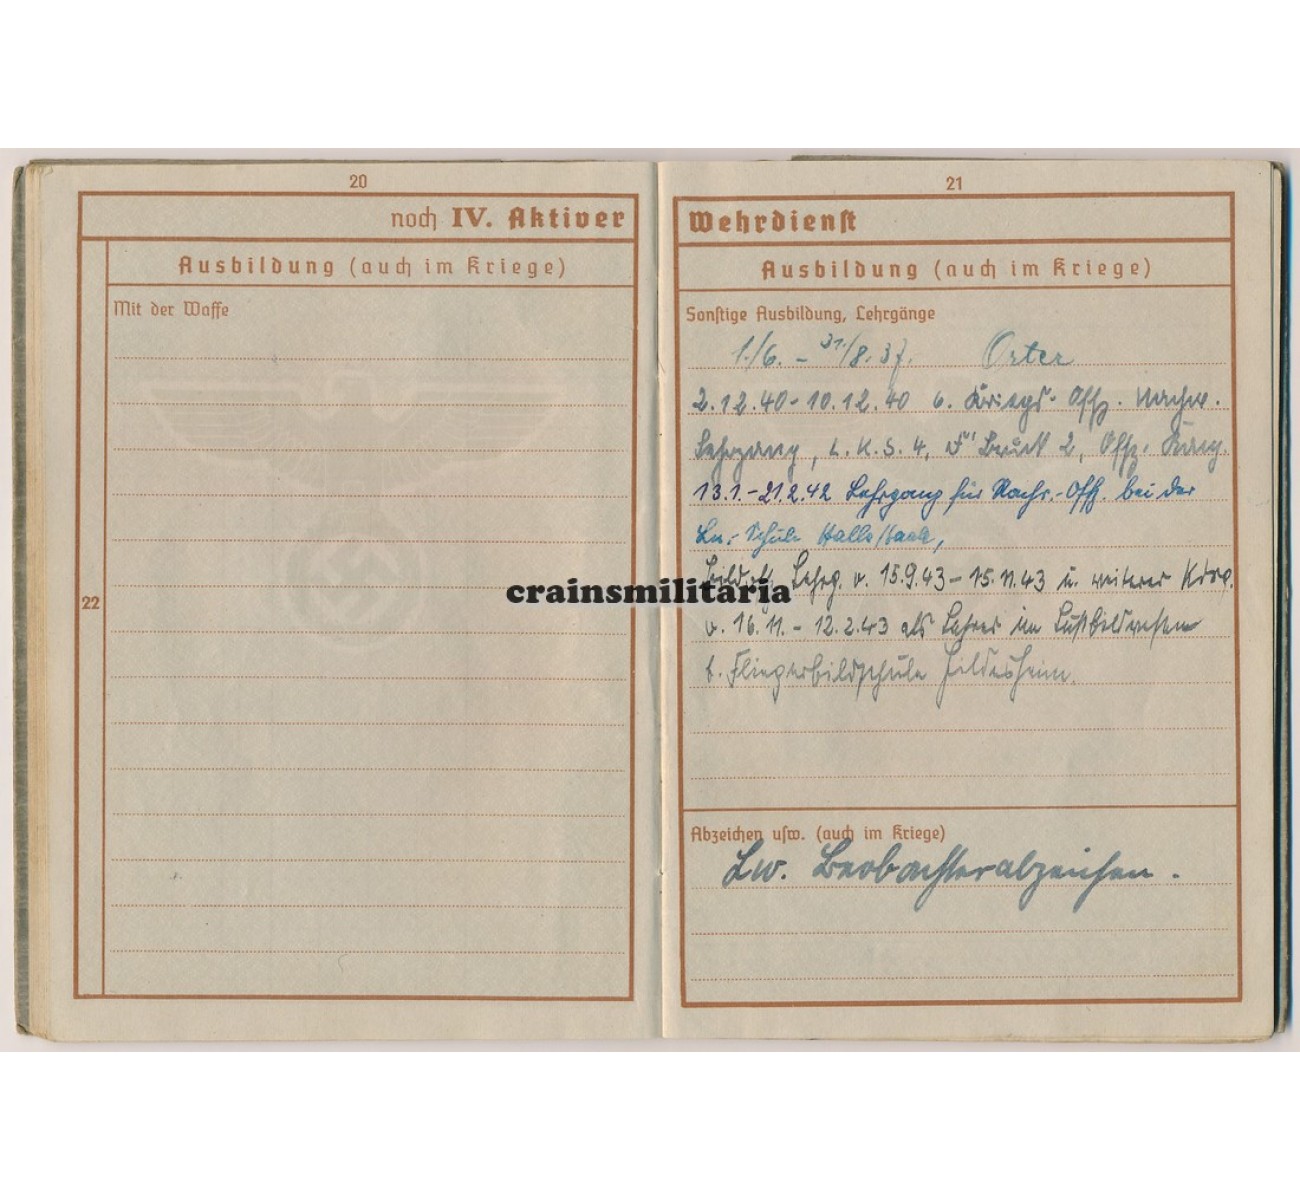 20
noch IV. Aktiver
Ausbildung (auch im Kriege)
Mit der Waffe
22
21
Wehrdienst
Ausbildung (auch im Kriege)
Sonstige Ausbildung, Lehrgänge
1./6. - 31./8.37. Orter
2.12.40-10.12.40 6. Kriegs-Offz. Nachw.
Lehrgang, L.K.S. 4, Bruck 2, Offz.
13.1.-21.2.42 Lehrgang für Nachr.-Offz. bei der
Ln.-Schule Halle/Saale,
Lehrg. v. 15.9.43-15.11.43 u. weiterer
v. 16.11.-12.2.43 als Lehrer im Luftbildwesen
b. Fliegerbildschule Hildesheim.
Abzeichen usw. (auch im Kriege)
Lw. Beobachterabzeichen.
crainsmilitaria